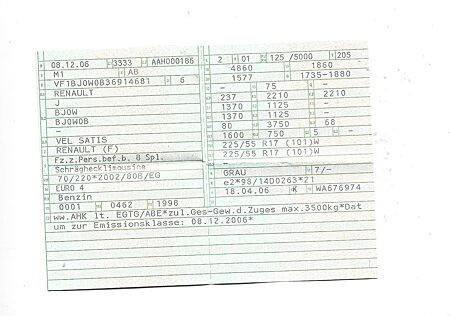 08.12.06 3333 AAH000186
M1 AB
VF1BJ0W0B36914681 6
RENAULT
J
BJ0W
BJ0W0B
-
VEL SATIS
RENAULT (F)
Fz.z.Pers.bef.b. 8 Spl.
Schräghecklimousine
70/220*2002/80B/EG
EURO 4
Benzin
0001 0462 1998
2 01 125 /5000 205
4860 1860
1577 1735-1880
- 75 -
237 2210 2210
1370 1125 -
1370 1125 -
80 3750 68
1600 750 5 -
225/55 R17 (101)W
225/55 R17 (101)W
-
GRAU 7/-
e2*98/14D0263*21
18.04.06 K WA676974
ww.AHK lt. EGTG/ABE*zul.Ges-Gew.d.Zuges max.3500kg*Dat
um zur Emissionsklasse: 08.12.2006*